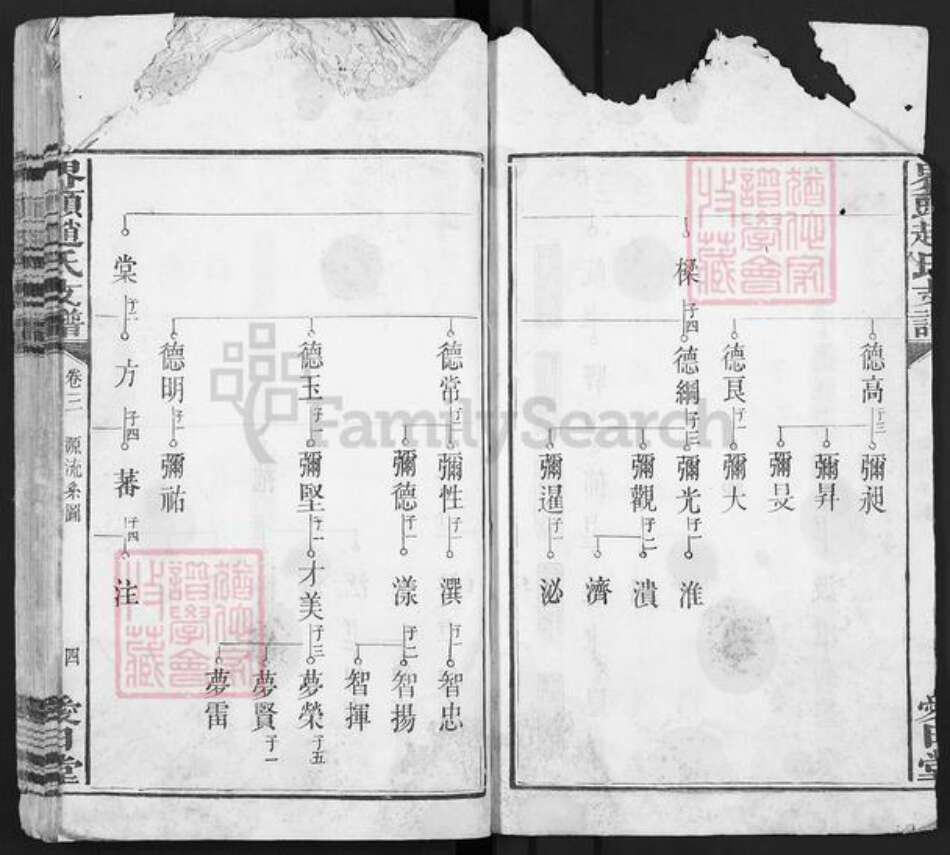 德高
子三
彌昶
彌昇
彌旻
德艮
子一
彌大
樑
子四
德綱
子三
彌光
子一
淮
彌觀
子二
濆
濟
彌暹
子一
泌
德常
子二
彌性
子一
潩
子一
智忠
彌德
子一
漾
子二
智揚
智揮
德玉
子一
彌堅
子一
才美
子三
夢榮
子五
夢賢
子一
夢雷
德明
子一
彌祐
棠
子二
方
子四
蕃
子四
注
界頭趙氏支譜
卷三
源流系圖
四
愛日堂
猶他家譜學會收藏
猶他家譜學會收藏
FamilySearch